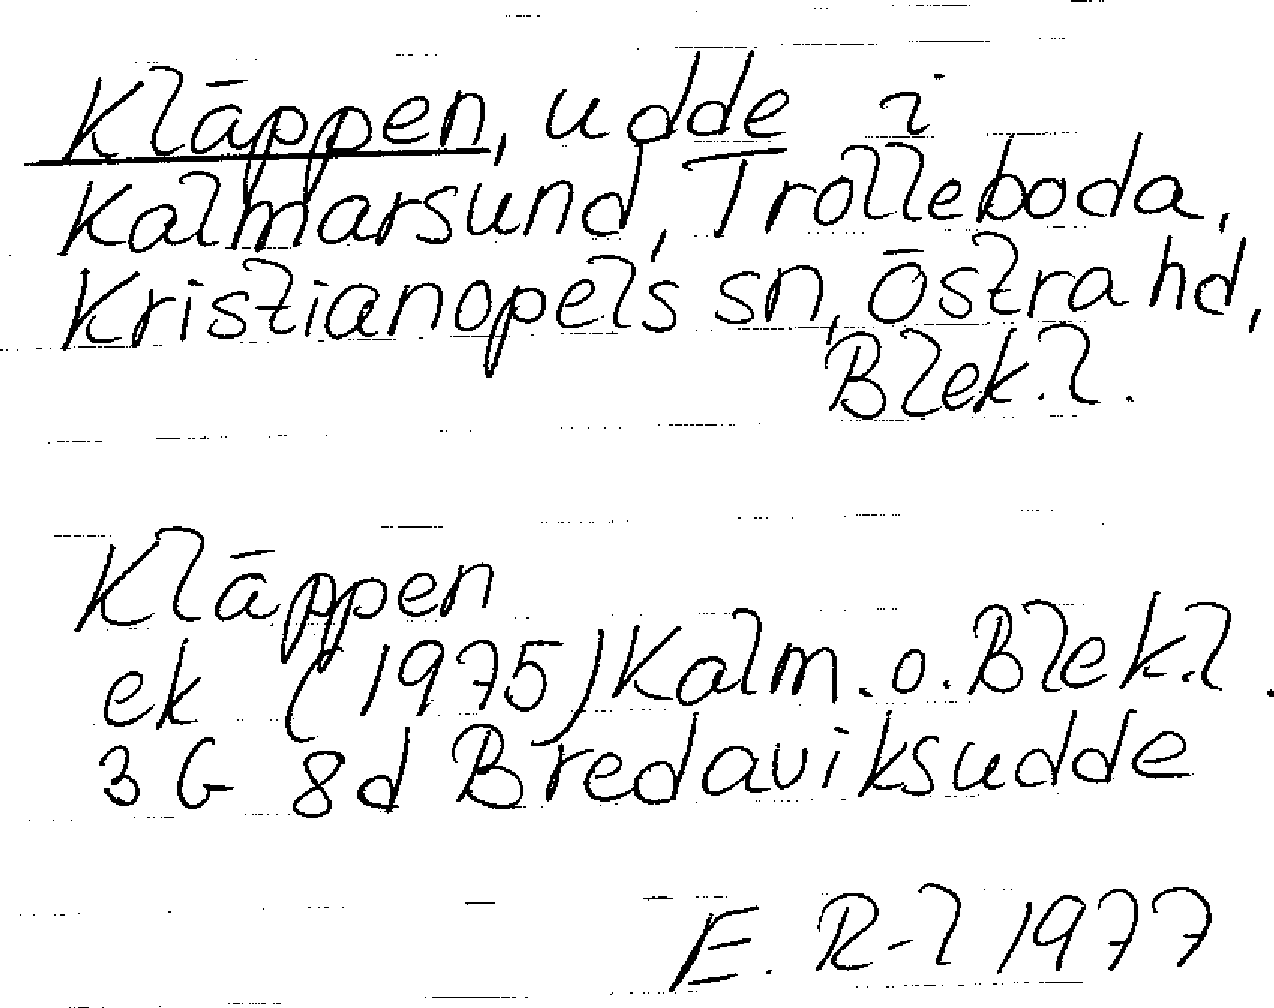 Kläppen, udde i
Kalmarsund, Trolleboda,
Kristianopels sn, Östra hd,
Blek.l.
Kläppen
ek (1975) Kalm. o. Blek.l.
3G 8d Bredaviksudde
E. R-l 1977